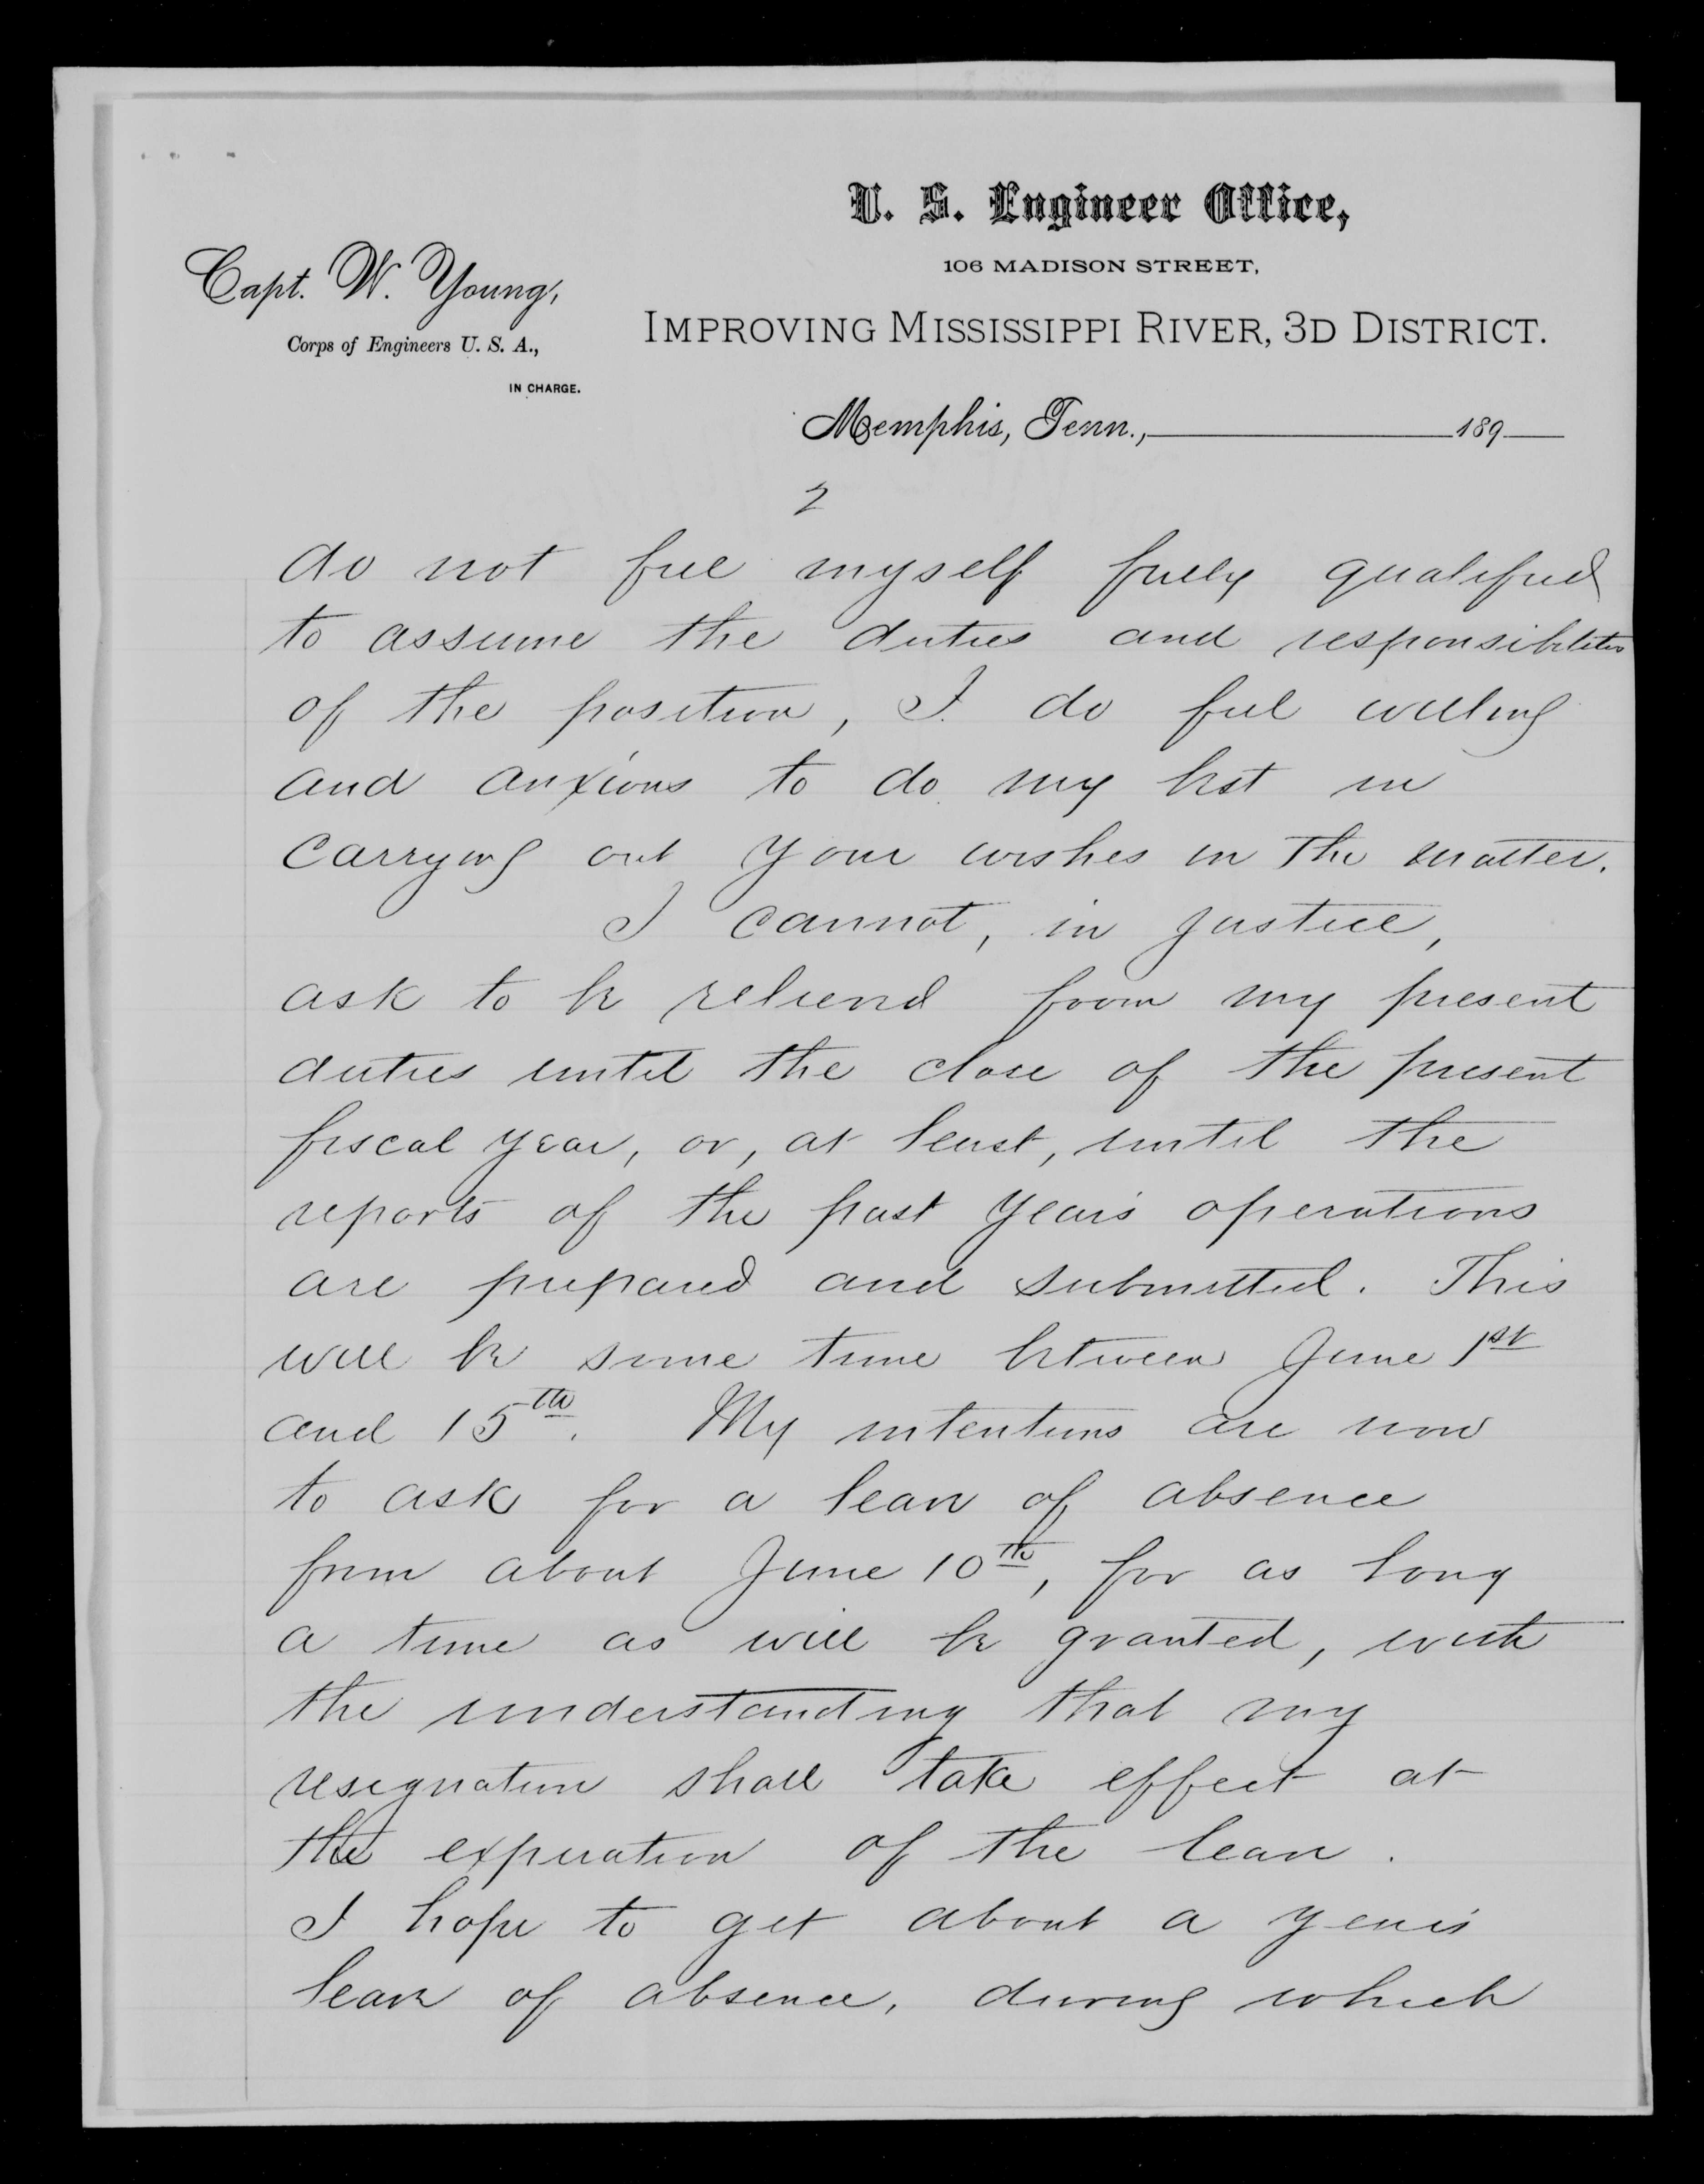 U. S. Engineer Office,
106 MADISON STREET,
Capt. W. Young,
Corps of Engineers U. S. A.,
IN CHARGE.
IMPROVING MISSISSIPPI RIVER, 3D DISTRICT.
Memphis, Tenn., 189
2
do not feel myself fully qualified
to assume the duties and responsibilities
of the position, I do feel willing
and anxious to do my best in
carrying out your wishes in the matter.
I cannot, in justice,
ask to be relieved from my present
duties until the close of the present
fiscal year, or, at least, until the
reports of the past year's operations
are prepared and submitted. This
will be some time between June 1st
and 15th. My intentions are now
to ask for a leave of absence
from about June 10th, for as long
a time as will be granted, with
the understanding that my
resignation shall take effect at
the expiration of the leave.
I hope to get about a year's
leave of absence, during which